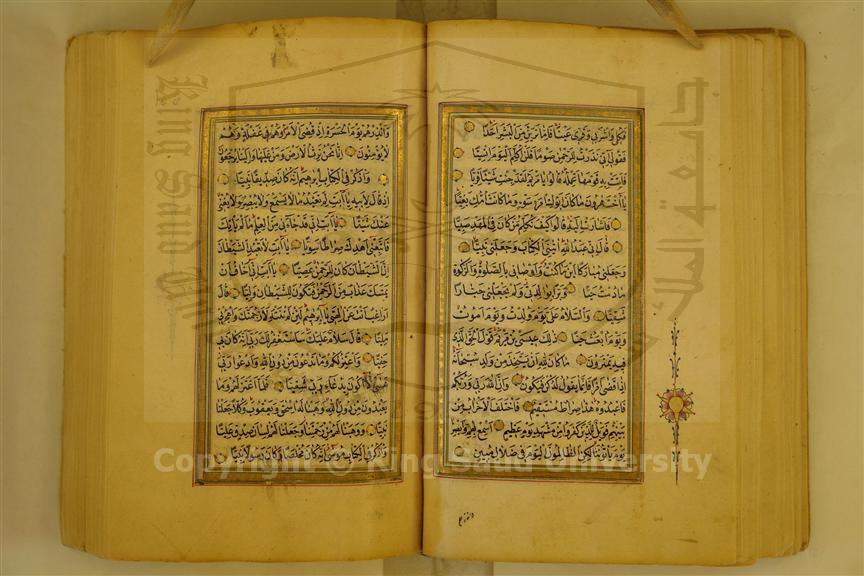 فَكُلِى وَاشْرَبِى وَقَرِّى عَيْنًا فَاِمَّا تَرَيِنَّ مِنَ الْبَشَرِ اَحَدًا
فَقُولِى اِنِّى نَذَرْتُ لِلرَّحْمٰنِ صَوْمًا فَلَنْ اُكَلِّمَ الْيَوْمَ اِنْسِيًّا
فَاَتَتْ بِهِ قَوْمَهَا تَحْمِلُهُ قَالُوا يَا مَرْيَمُ لَقَدْ جِئْتِ شَيْئًا فَرِيًّا
يَا اُخْتَ هٰرُونَ مَا كَانَ اَبُوكِ امْرَاَ سَوْءٍ وَمَا كَانَتْ اُمُّكِ بَغِيًّا
فَاَشَارَتْ اِلَيْهِ قَالُوا كَيْفَ نُكَلِّمُ مَنْ كَانَ فِى الْمَهْدِ صَبِيًّا
قَالَ اِنِّى عَبْدُ اللّٰهِ اٰتٰنِىَ الْكِتَابَ وَجَعَلَنِى نَبِيًّا
وَجَعَلَنِى مُبَارَكًا اَيْنَ مَا كُنْتُ وَاَوْصَانِى بِالصَّلٰوةِ وَالزَّكٰوةِ
مَا دُمْتُ حَيًّا وَبَرًّا بِوَالِدَتِى وَلَمْ يَجْعَلْنِى جَبَّارًا
شَقِيًّا وَالسَّلَامُ عَلَىَّ يَوْمَ وُلِدْتُ وَيَوْمَ اَمُوتُ
وَيَوْمَ اُبْعَثُ حَيًّا ذٰلِكَ عِيسَى بْنُ مَرْيَمَ قَوْلَ الْحَقِّ الَّذِى
فِيهِ يَمْتَرُونَ مَا كَانَ لِلّٰهِ اَنْ يَتَّخِذَ مِنْ وَلَدٍ سُبْحَانَهُ
اِذَا قَضٰى اَمْرًا فَاِنَّمَا يَقُولُ لَهُ كُنْ فَيَكُونُ وَاِنَّ اللّٰهَ رَبِّى وَرَبُّكُمْ
فَاعْبُدُوهُ هٰذَا صِرَاطٌ مُسْتَقِيمٌ فَاخْتَلَفَ الْاَحْزَابُ مِنْ
بَيْنِهِمْ فَوَيْلٌ لِلَّذِينَ كَفَرُوا مِنْ مَشْهَدِ يَوْمٍ عَظِيمٍ اَسْمِعْ بِهِمْ وَاَبْصِرْ
يَوْمَ يَاْتُونَنَا لٰكِنِ الظَّالِمُونَ الْيَوْمَ فِى ضَلَالٍ مُبِينٍ
وَاَنْذِرْهُمْ يَوْمَ الْحَسْرَةِ اِذْ قُضِىَ الْاَمْرُ وَهُمْ فِى غَفْلَةٍ وَهُمْ
لَا يُؤْمِنُونَ اِنَّا نَحْنُ نَرِثُ الْاَرْضَ وَمَنْ عَلَيْهَا وَاِلَيْنَا يُرْجَعُونَ
وَاذْكُرْ فِى الْكِتَابِ اِبْرٰهِيمَ اِنَّهُ كَانَ صِدِّيقًا نَبِيًّا
اِذْ قَالَ لِاَبِيهِ يَا اَبَتِ لِمَ تَعْبُدُ مَا لَا يَسْمَعُ وَلَا يُبْصِرُ وَلَا يُغْنِى
عَنْكَ شَيْئًا يَا اَبَتِ اِنِّى قَدْ جَاءَنِى مِنَ الْعِلْمِ مَا لَمْ يَاْتِكَ
فَاتَّبِعْنِى اَهْدِكَ صِرَاطًا سَوِيًّا يَا اَبَتِ لَا تَعْبُدِ الشَّيْطَانَ
اِنَّ الشَّيْطَانَ كَانَ لِلرَّحْمٰنِ عَصِيًّا يَا اَبَتِ اِنِّى اَخَافُ اَنْ
يَمَسَّكَ عَذَابٌ مِنَ الرَّحْمٰنِ فَتَكُونَ لِلشَّيْطَانِ وَلِيًّا قَالَ
اَرَاغِبٌ اَنْتَ عَنْ اٰلِهَتِى يَا اِبْرٰهِيمُ لَئِنْ لَمْ تَنْتَهِ لَاَرْجُمَنَّكَ وَاهْجُرْنِى
مَلِيًّا قَالَ سَلَامٌ عَلَيْكَ سَاَسْتَغْفِرُ لَكَ رَبِّى اِنَّهُ كَانَ بِى
حَفِيًّا وَاَعْتَزِلُكُمْ وَمَا تَدْعُونَ مِنْ دُونِ اللّٰهِ وَاَدْعُوا رَبِّى
عَسٰى اَلَّا اَكُونَ بِدُعَاءِ رَبِّى شَقِيًّا فَلَمَّا اعْتَزَلَهُمْ وَمَا
يَعْبُدُونَ مِنْ دُونِ اللّٰهِ وَهَبْنَا لَهُ اِسْحٰقَ وَيَعْقُوبَ وَكُلًّا جَعَلْنَا
نَبِيًّا وَوَهَبْنَا لَهُمْ مِنْ رَحْمَتِنَا وَجَعَلْنَا لَهُمْ لِسَانَ صِدْقٍ عَلِيًّا
وَاذْكُرْ فِى الْكِتَابِ مُوسٰى اِنَّهُ كَانَ مُخْلَصًا وَكَانَ رَسُولًا نَبِيًّا
وانذرهم
King Saud University
جامعة الملك
Copyright © King Saud University